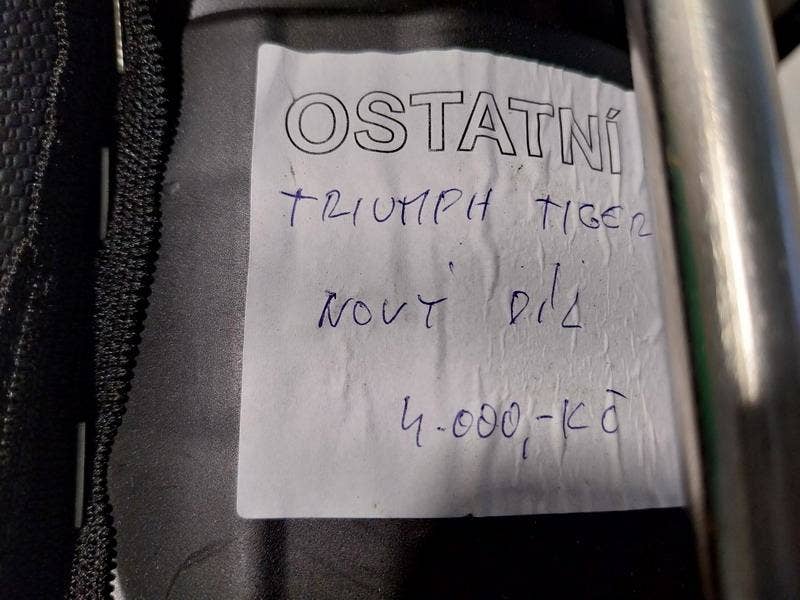 OSTATNÍ
TRIUMPH TIGER
NOVÝ DÍL
4.000,-KČ